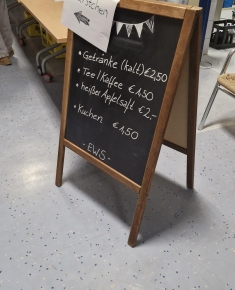 • Getränke (kalt) €2,50
• Tee / Kaffee €1,50
• heißer Apfelsaft €2,-
• Kuchen €1,50
- EWS -